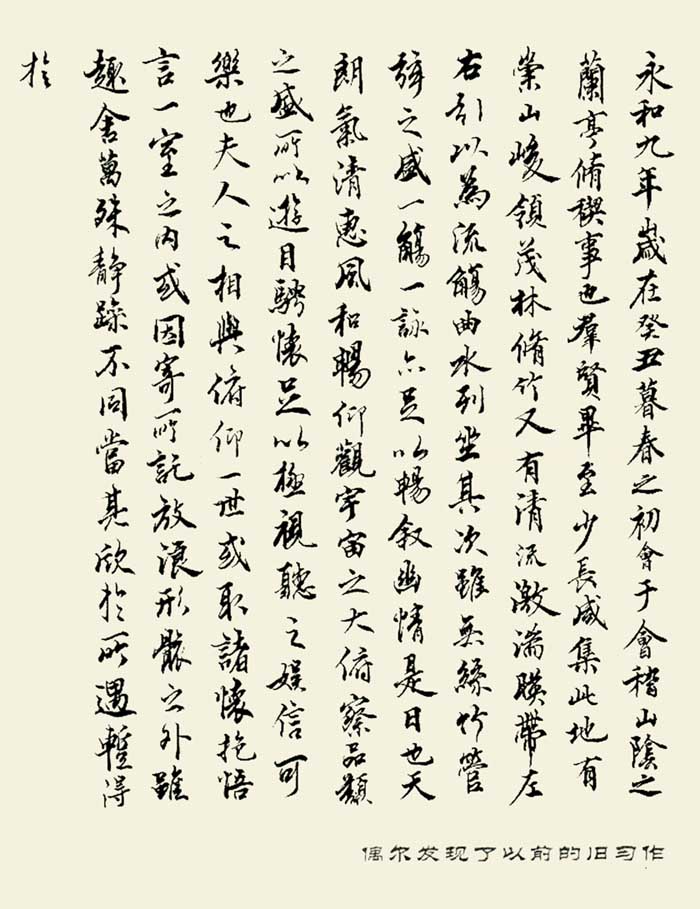 永和九年歲在癸丑暮春之初會于會稽山陰之
蘭亭脩禊事也羣賢畢至少長咸集此地有
崇山峻領茂林脩竹又有清流激湍暎帶左
右引以為流觴曲水列坐其次雖無絲竹管
絃之盛一觴一詠亦足以暢叙幽情是日也天
朗氣清惠風和暢仰觀宇宙之大俯察品類
之盛所以遊目騁懷足以極視聽之娛信可
樂也夫人之相與俯仰一世或取諸懷抱悟
言一室之內或因寄所託放浪形骸之外雖
趣舍萬殊静躁不同當其欣於所遇暫得
於
偶尔发现了以前的旧习作